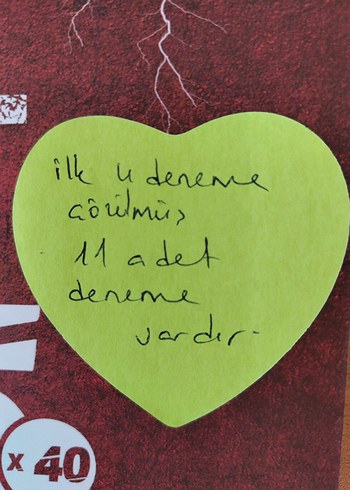 ilk 4 deneme
çözülmüş
11 adet
deneme
vardır.
x 40